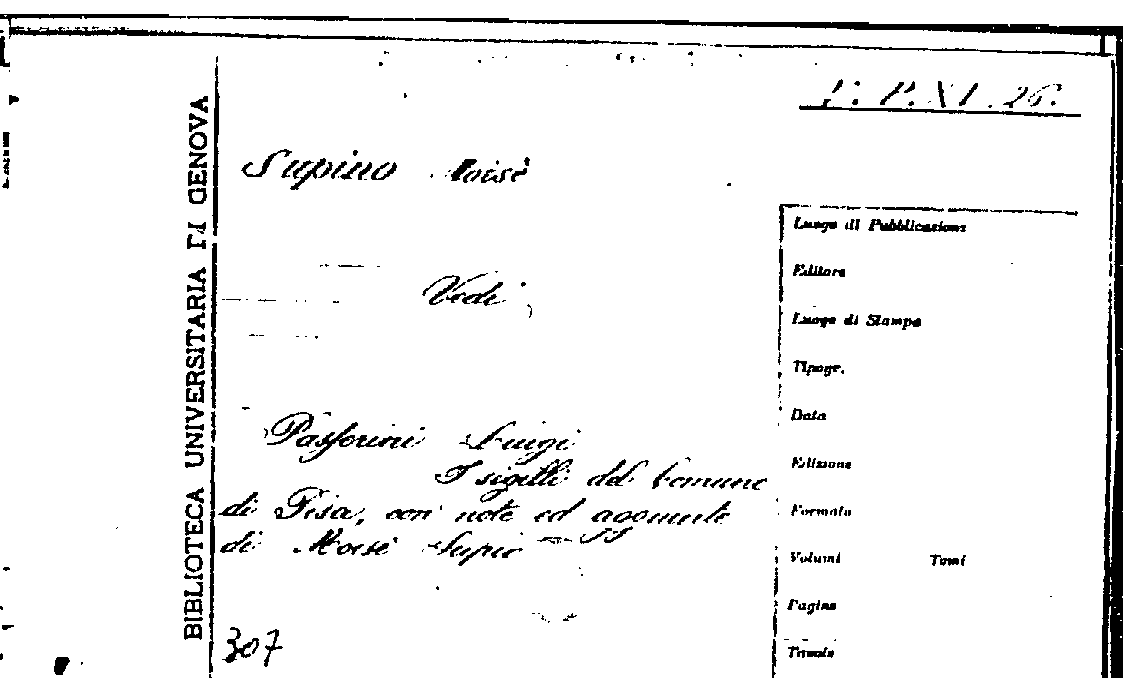 BIBLIOTECA UNIVERSITARIA DI GENOVA
F. P. XI. 26.
Supino Moisè
Vedi
Passerini Luigi
I sigilli del Comune
di Pisa, con note ed aggiunte
di Moisè Supino
307
Luogo di Pubblicazione
Editore
Luogo di Stampa
Tipogr.
Data
Edizione
Formato
Volumi Tomi
Pagine
Tavole